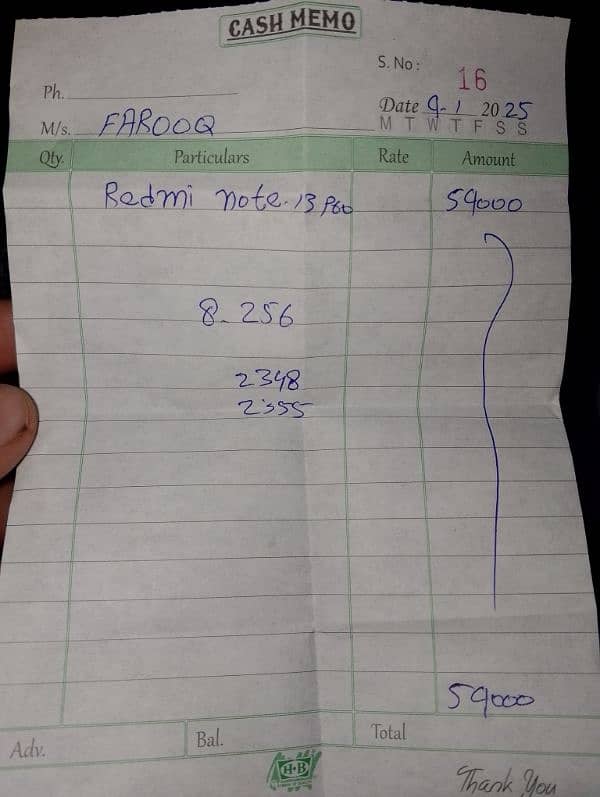 CASH MEMO
S. No: 16
Ph.
Date 9-1 2025
M/s. FAROOQ
M T W T F S S
Qty. Particulars Rate Amount
Redmi note.13 Pro 59000
8-256
2348
2355
59000
Adv. Bal. Total
H-B
Thank You